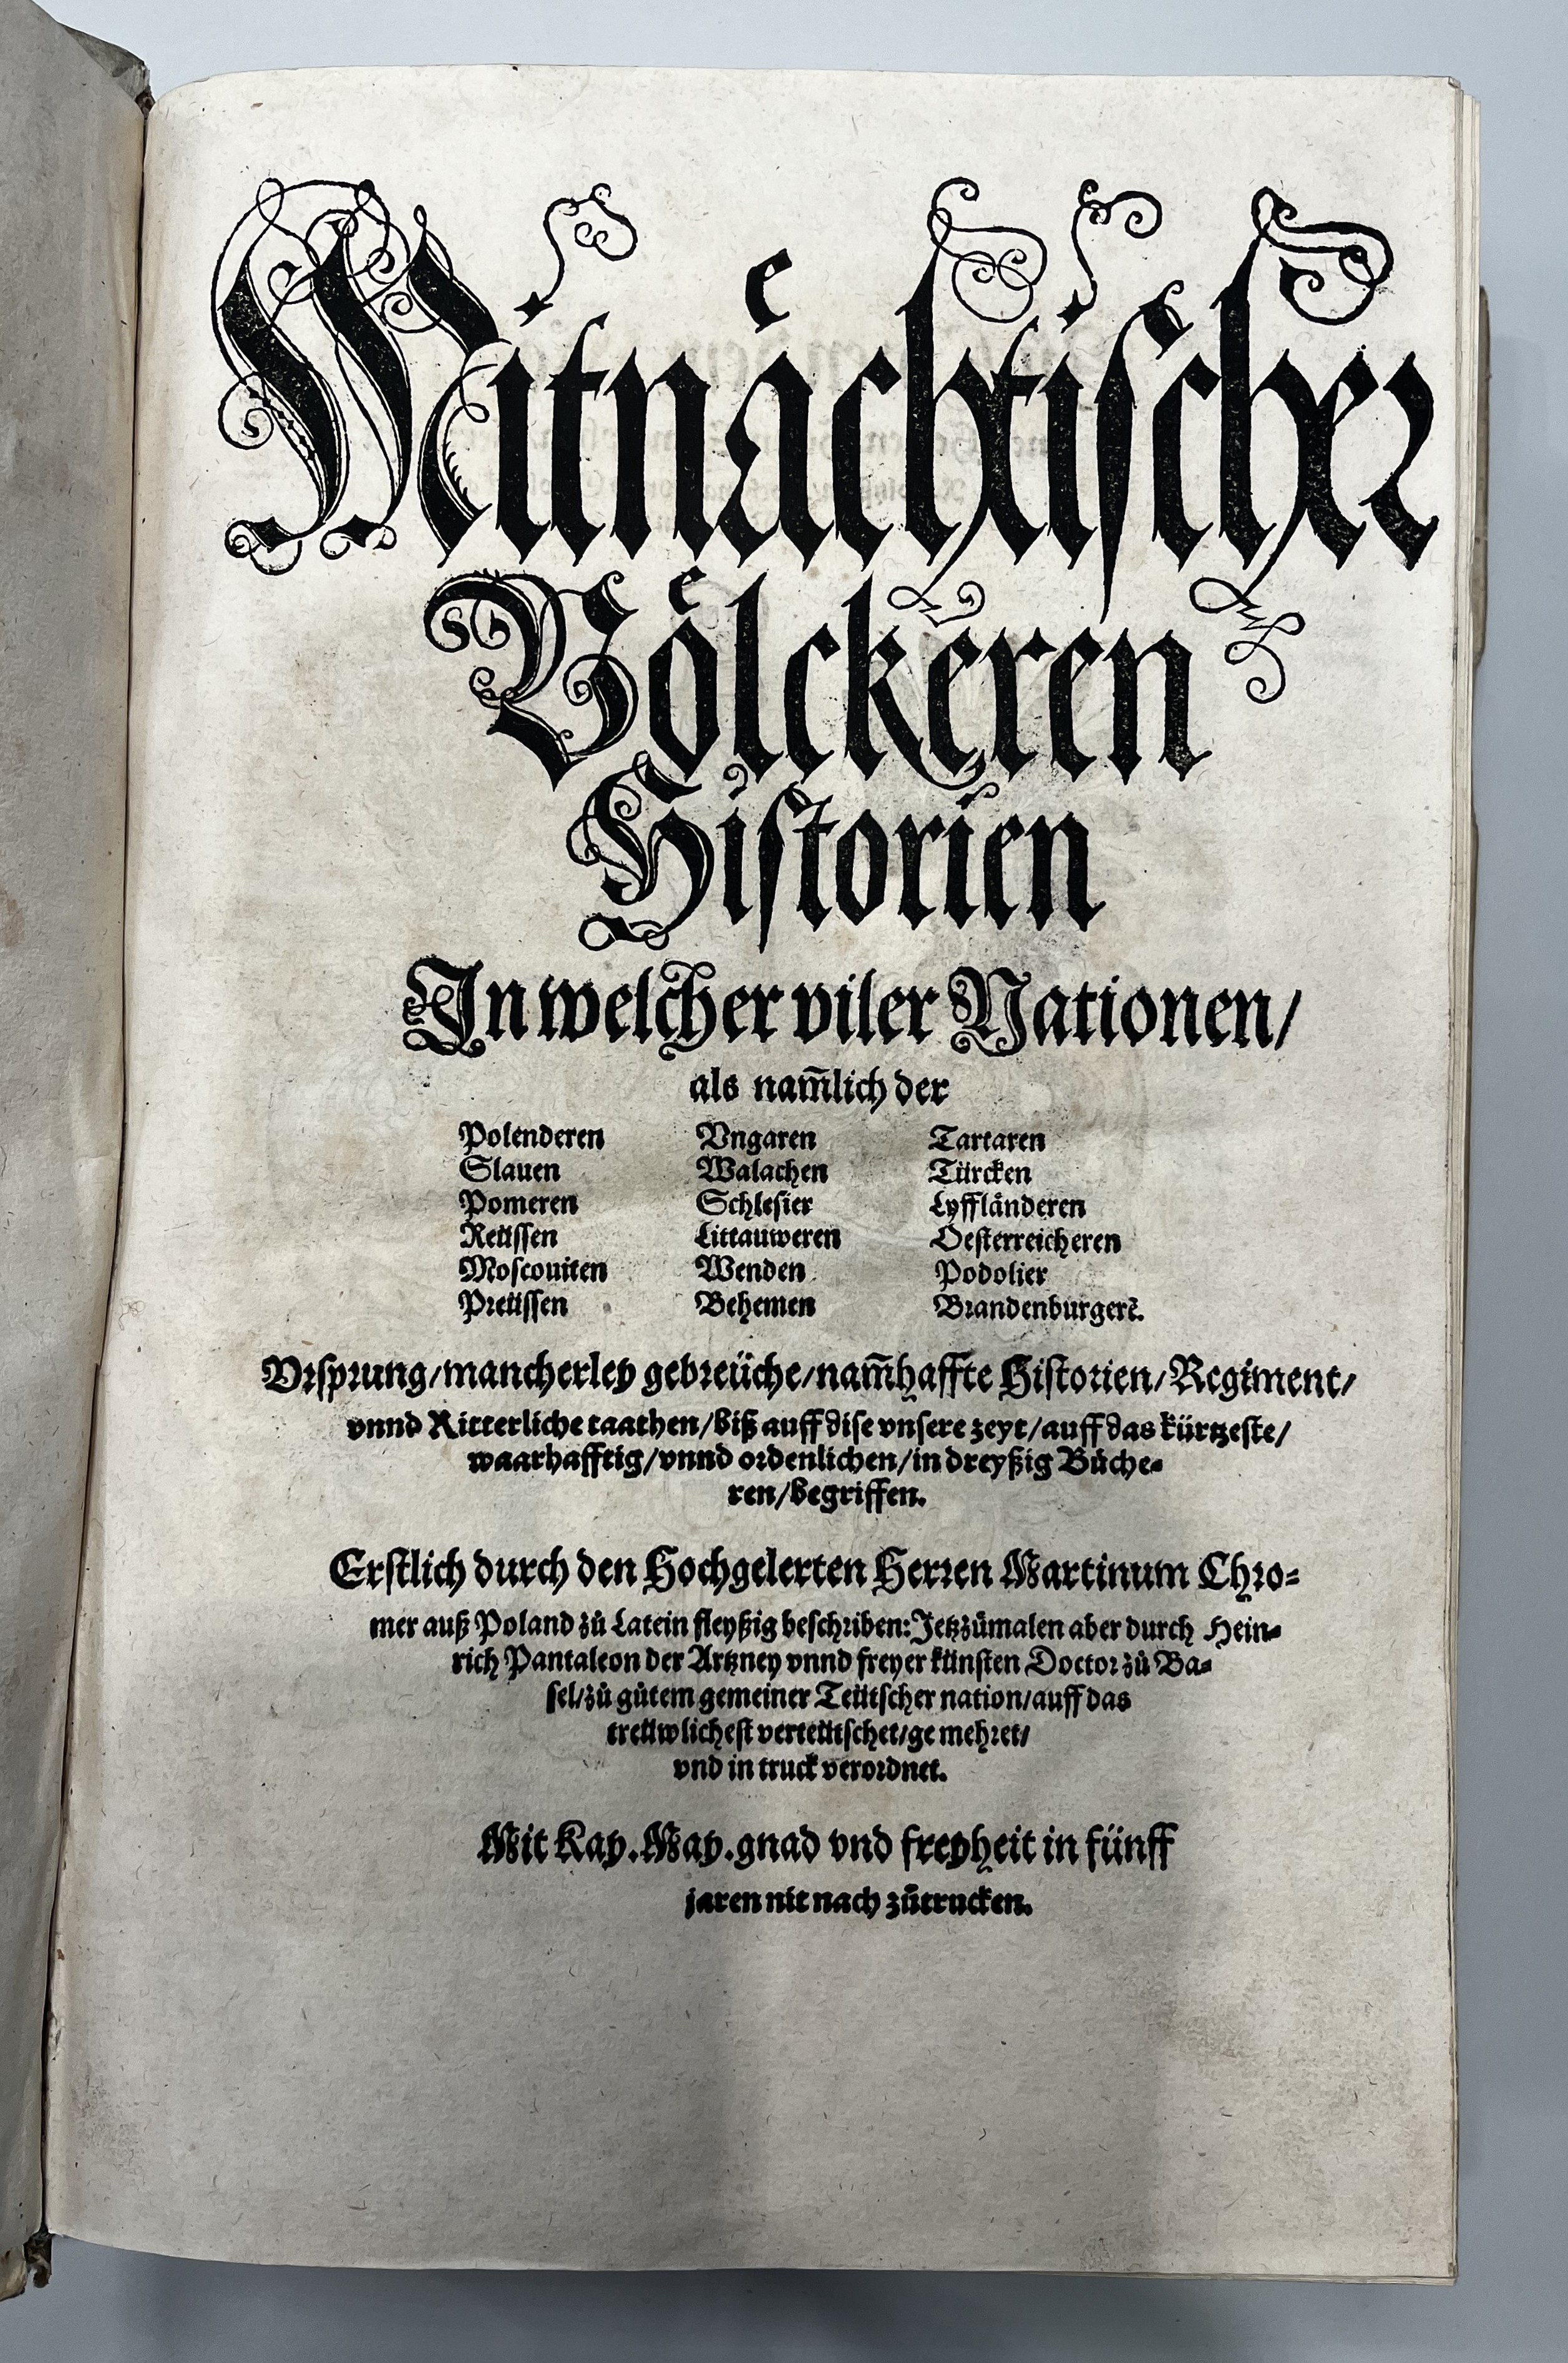 Mitnaͤchtischer
Voͤlckeren
Historien
In welcher viler Nationen/
als nam̃lich der
Polenderen Vngaren Tartaren
Slauen Walachen Türcken
Pomeren Schlesier Lyfflaͤnderen
Reüssen Littauweren Oesterreicheren
Moscouiten Wenden Podolier
Preüssen Behemen Brandenburgerẽ.
Vrsprung/mancherley gebreüche/nam̃haffte Historien/Regiment/
vnnd Ritterliche taathen/biß auff dise vnsere zeyt/auff das kürtzeste/
waarhafftig/vnnd ordenlichen/in dreyßig Buͤche-
ren/begriffen.
Erstlich durch den Hochgelerten Herren Martinum Chro-
mer auß Poland zů Latein fleyßig beschriben: Jetzzůmalen aber durch Hein-
rich Pantaleon der Artzney vnnd freyer künsten Doctor zů Ba-
sel/zů gůtem gemeiner Teütscher nation/auff das
treüwlichest verteütschet/gemehret/
vnd in truck verordnet.
Mit Kay. May. gnad vnd freyheit in fünff
jaren nit nach zůtrucken.